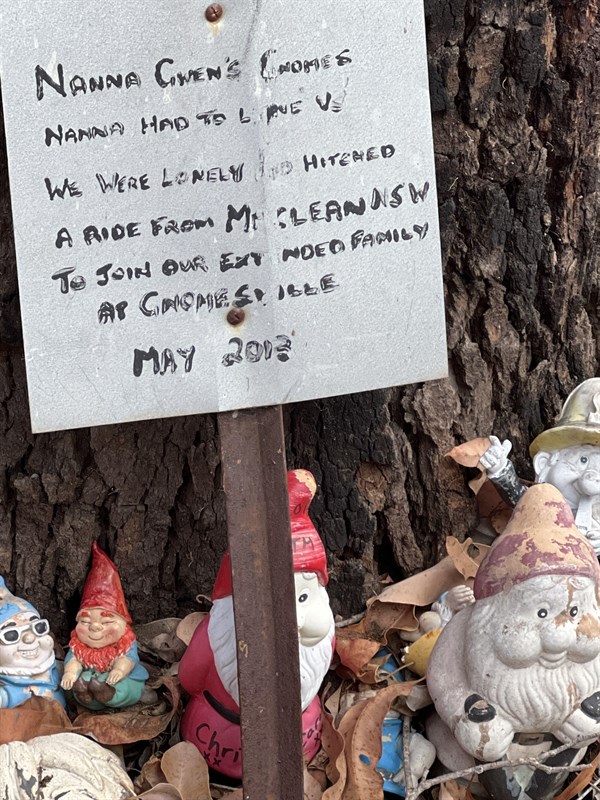 NANNA GWEN'S GNOMES
NANNA HAD TO LEAVE US
WE WERE LONELY AND HITCHED
A RIDE FROM MACLEAN NSW
TO JOIN OUR EXTENDED FAMILY
AT GNOMESVILLE
MAY 2013
Chri
xx